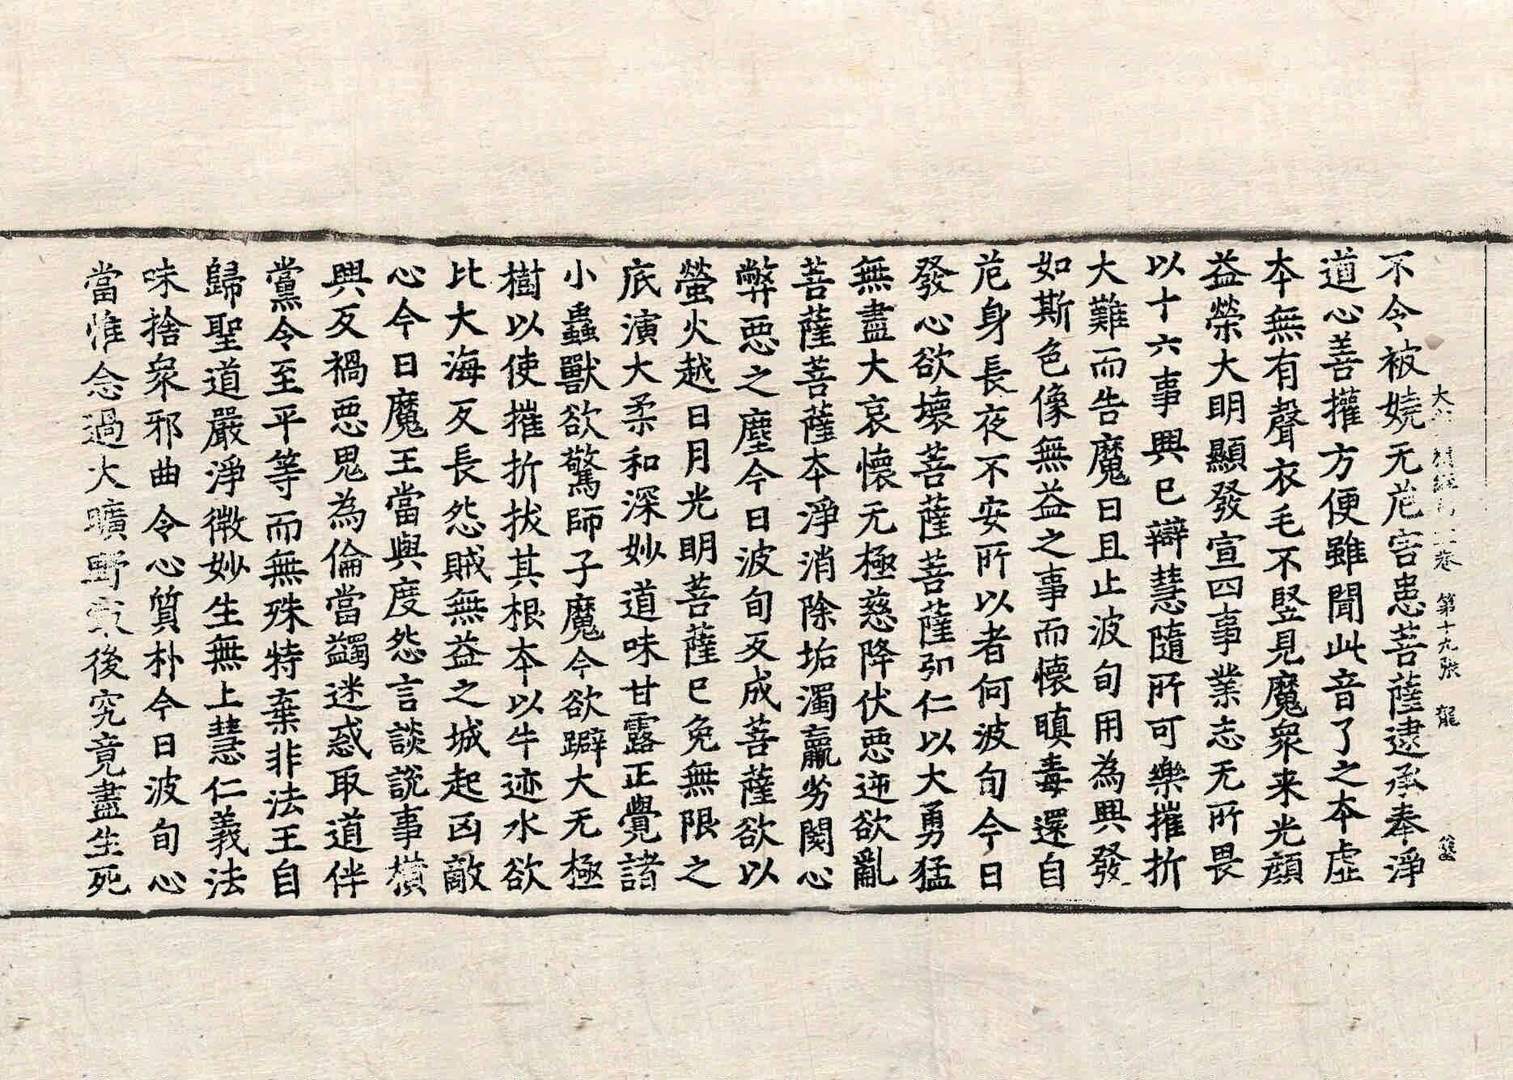 不令被嬈无危害患菩薩逮承奉淨
道心善權方便雖聞此音了之本虛
本無有聲衣毛不竪見魔衆来光顔
益榮大明顯發宣四事業志无所畏
以十六事興已辯慧隨所可樂摧折
大難而告魔曰且止波旬用為興發
如斯色像無益之事而懷瞋毒還自
危身長夜不安所以者何波旬今日
發心欲壞菩薩菩薩弘仁以大勇猛
無盡大哀懷无極慈降伏惡逆欲亂
菩薩菩薩本淨消除垢濁羸劣閡心
弊惡之塵今日波旬反成菩薩欲以
螢火越日月光明菩薩已免無限之
底演大柔和深妙道味甘露正覺諸
小蟲獸欲驚師子魔今欲躃大无極
樹以使摧折拔其根本以牛迹水欲
比大海反長怨賊無益之城起凶敵
心今日魔王當與度怨言談說事横
興反禍惡鬼為倫當蠲迷惑取道伴
黨令至平等而無殊特棄非法王自
歸聖道嚴淨微妙生無上慧仁義法
味捨衆邪曲令心質朴今日波旬心
當惟念過大曠野最後究竟盡生死